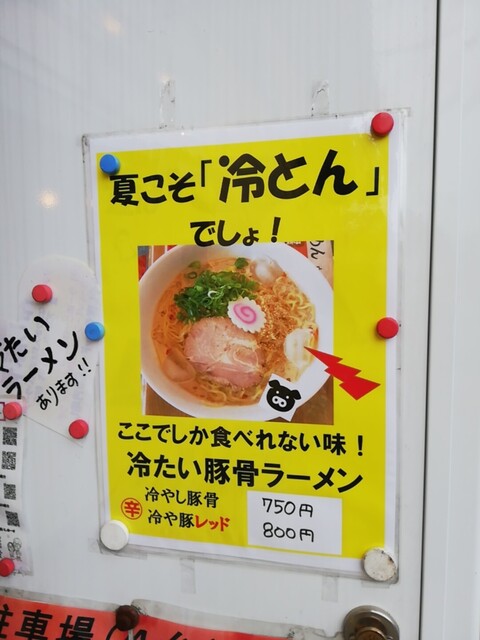 夏こそ「冷とん」
でしょ！
ここでしか食べれない味！
冷たい豚骨ラーメン
冷やし豚骨 750円
辛 冷や豚レッド 800円
ラーメン
あります!!
駐車場